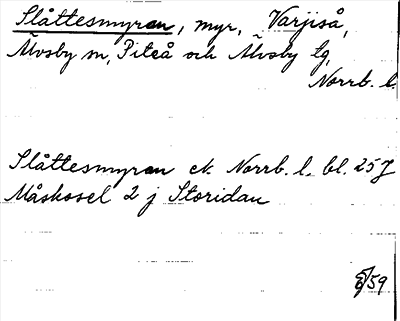 Slåttesmyran, myr, Varjiså,
Älvsby sn, Piteå och Älvsby tg,
Norrb. l.
Slåttesmyran ek. Norrb. l. bl. 25J
Måskosel 2 j Storidan
59